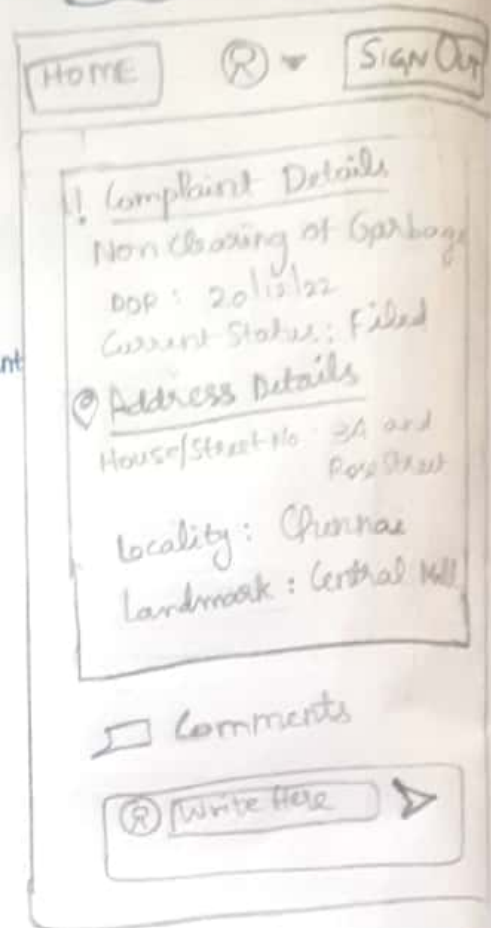 HOME R SIGN OUT
! Complaint Details
Non Clearing of Garbage
DOP : 20/12/22
Current Status: Filed
nt
Address Details
House/Street No : 3A and
Rose Street
Locality : Chennai
Landmark : Central Mall
Comments
R Write Here